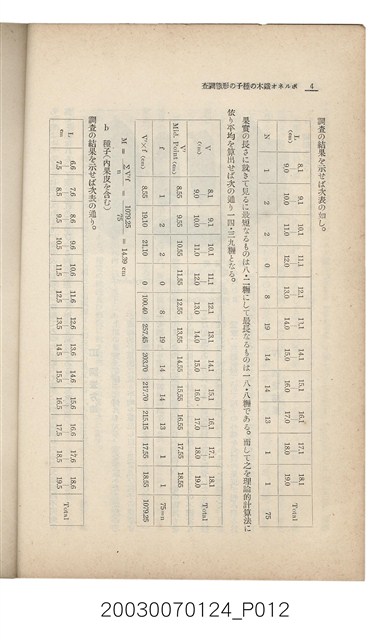 4　ボルネオ鐵木の種子の形態調査
調査の結果を示せば次表の如し。
L (cm) 8.1 9.0 9.1 10.0 10.1 11.0 11.1 12.0 12.1 13.0 13.1 14.0 14.1 15.0 15.1 16.0 16.1 17.0 17.1 18.0 18.1 19.0 Total
N 1 2 2 0 8 19 14 14 13 1 1 75
果實の長さに就きて見るに最短なるものは八・二糎にして最長なるものは一八・八糎である。而して之を理論的計算法に
依り平均を算出せば次の通り一四・三九糎となる。
V 8.1 9.0 9.1 10.0 10.1 11.0 11.1 12.0 12.1 13.0 13.1 14.0 14.1 15.0 15.1 16.0 16.1 17.0 17.1 18.0 18.1 19.0 Total
V' Mid. Point (cm) 8.55 9.55 10.55 11.55 12.55 13.55 14.55 15.55 16.55 17.55 18.55
f 1 2 2 0 8 19 14 14 13 1 1 75=n
V'×f (cm) 8.55 19.10 21.10 0 100.40 257.45 203.70 217.70 215.15 17.55 18.55 1079.25
M = ΣV'f / n = 1079.25 / 75 = 14.39 cm
b 種子（内果皮を含む）
調査の結果を示せば次表の通り。
L cm 6.6 7.5 7.6 8.5 8.6 9.5 9.6 10.5 10.6 11.5 11.6 12.5 12.6 13.5 13.6 14.5 14.6 15.5 15.6 16.5 16.6 17.5 17.6 18.5 18.6 19.5 Total
20030070124_P012